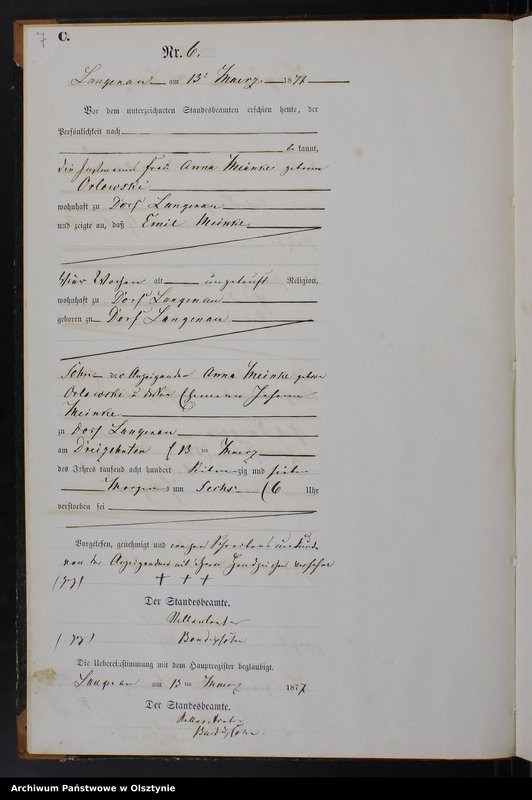 7
C.
Nr. 6.
Langenau am 13t Maerz 1877
Vor dem unterzeichneten Standesbeamten erschien heute, der
Persönlichkeit nach
be kannt,
die Instmann Frau Anna Meinke geborene
Orlowski
wohnhaft zu Dorf Langenau
und zeigte an, daß Emil Meinke
Vier Wochen alt ungetauft Religion,
wohnhaft zu Dorf Langenau
geboren zu Dorf Langenau
Sohn der Anzeigenden Anna Meinke geborne
Orlowski u Ehemann Johann
Meinke
zu Dorf Langenau
am Dreizehnten (13 ten Maerz
des Jahres tausend acht hundert Sieben zig und sieben
Morgens um Sechs (6 Uhr
verstorben sei
Vorgelesen, genehmigt und wegen Schreibens unkunde
von der Anzeigenden mit ihrem Handzeichen versehen
† † †
Der Standesbeamte.
Die Uebereinstimmung mit dem Hauptregister beglaubigt.
Langenau am 13 ten Maerz 1877
Der Standesbeamte.
Archiwum Państwowe w Olsztynie